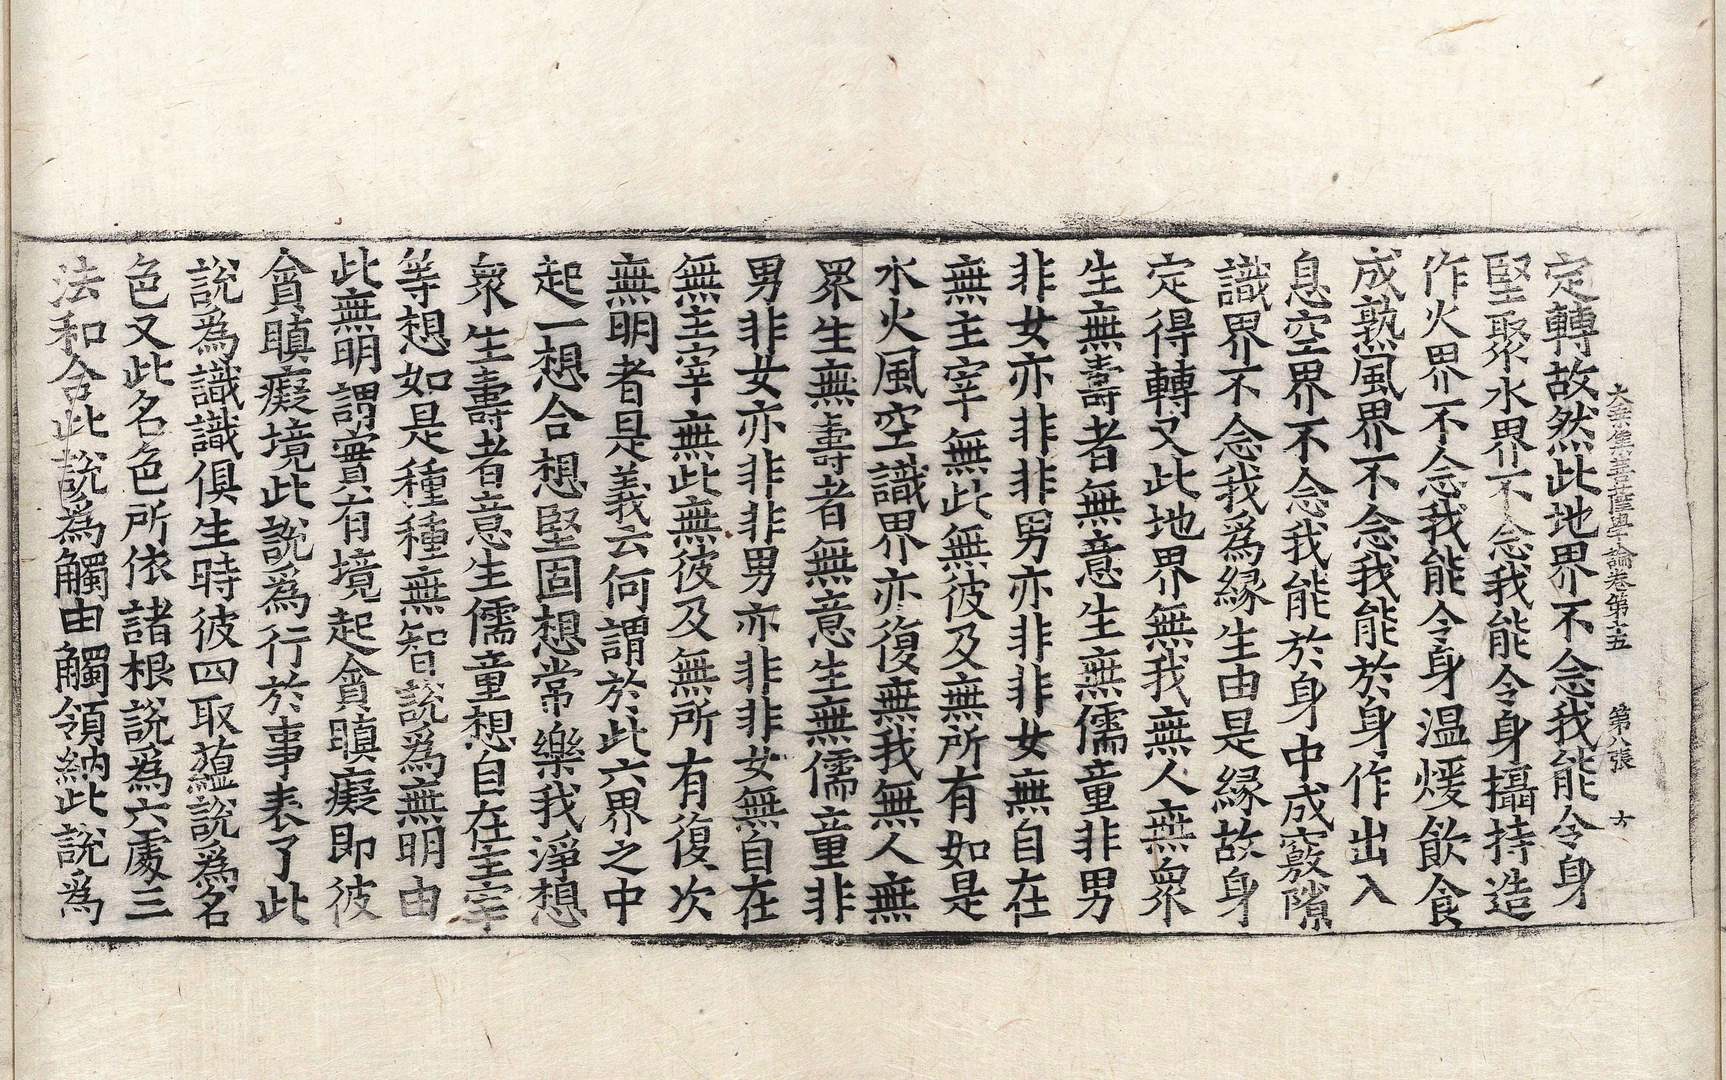 大乘集菩薩學論卷第十五　第八張　大
定轉故然此地界不念我能令身
堅聚水界不念我能令身攝持造
作火界不念我能令身温煖飲食
成熟風界不念我能於身作出入
息空界不念我能於身中成竅隙
識界不念我爲緣生由是緣故身
定得轉又此地界無我無人無衆
生無壽者無意生無儒童非男
非女亦非非男亦非非女無自在
無主宰無此無彼及無所有如是
水火風空識界亦復無我無人無
衆生無壽者無意生無儒童非
男非女亦非非男亦非非女無自在
無主宰無此無彼及無所有復次
無明者是義云何謂於此六界之中
起一想合想堅固想常樂我淨想
衆生壽者意生儒童想自在主宰
等想如是種種無智說爲無明由
此無明謂實有境起貪瞋癡即彼
貪瞋癡境此說爲行於事表了此
說爲識識俱生時彼四取蘊說爲名
色又此名色所依諸根說爲六處三
法和合此說爲觸由觸領納此說爲